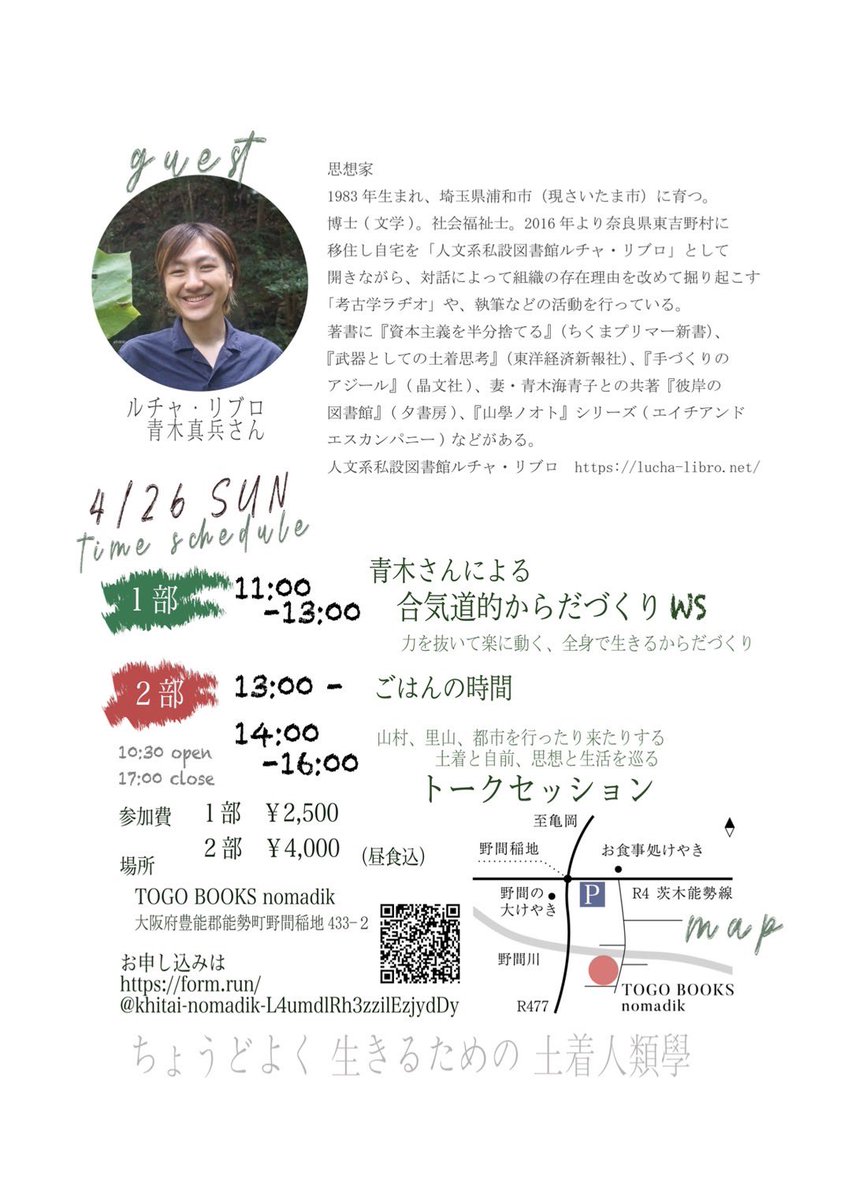 guest
ルチャ・リブロ
青木真兵さん
思想家
1983年生まれ、埼玉県浦和市（現さいたま市）に育つ。
博士(文学)。社会福祉士。2016年より奈良県東吉野村に
移住し自宅を「人文系私設図書館ルチャ・リブロ」として
開きながら、対話によって組織の存在理由を改めて掘り起こす
「考古学ラヂオ」や、執筆などの活動を行っている。
著書に『資本主義を半分捨てる』（ちくまプリマー新書）、
『武器としての土着思考』（東洋経済新報社）、『手づくりの
アジール』(晶文社)、妻・青木海青子との共著『彼岸の
図書館』(夕書房)、『山學ノオト』シリーズ(エイチアンド
エスカンパニー)などがある。
人文系私設図書館ルチャ・リブロ　https://lucha-libro.net/
4/26 SUN
time schedule
1部
11:00
-13:00
青木さんによる
合気道的からだづくりWS
力を抜いて楽に動く、全身で生きるからだづくり
2部
13:00 -
ごはんの時間
14:00
-16:00
山村、里山、都市を行ったり来たりする
土着と自前、思想と生活を巡る
トークセッション
10:30 open
17:00 close
参加費
1部　￥2,500
2部　￥4,000　(昼食込)
場所
TOGO BOOKS nomadik
大阪府豊能郡能勢町野間稲地433−2
お申し込みは
https://form.run/
@khitai-nomadik-L4umdlRh3zzilEzjydDy
至亀岡
野間稲地
お食事処けやき
野間の
大けやき
P
R4 茨木能勢線
map
野間川
TOGO BOOKS
nomadik
R477
ちょうどよく 生きるための 土着人類學